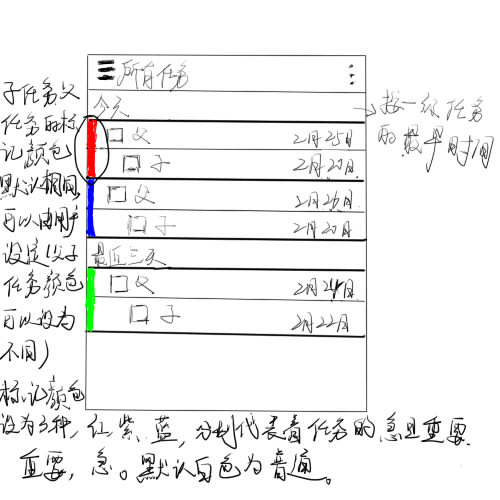 所有任务
今天
父 2月25日
子 2月20日
父 2月26日
子 2月20日
最近三天
父 2月24日
子 2月22日
按一级任务
的最早时间
子任务父
任务的标
记颜色
默认相同
可以由用户
设定父子
任务颜色
可以设为
不同)
标记颜色
设为3种,红紫蓝,分别代表着任务的急且重要
重要,急。默认白色为普通。